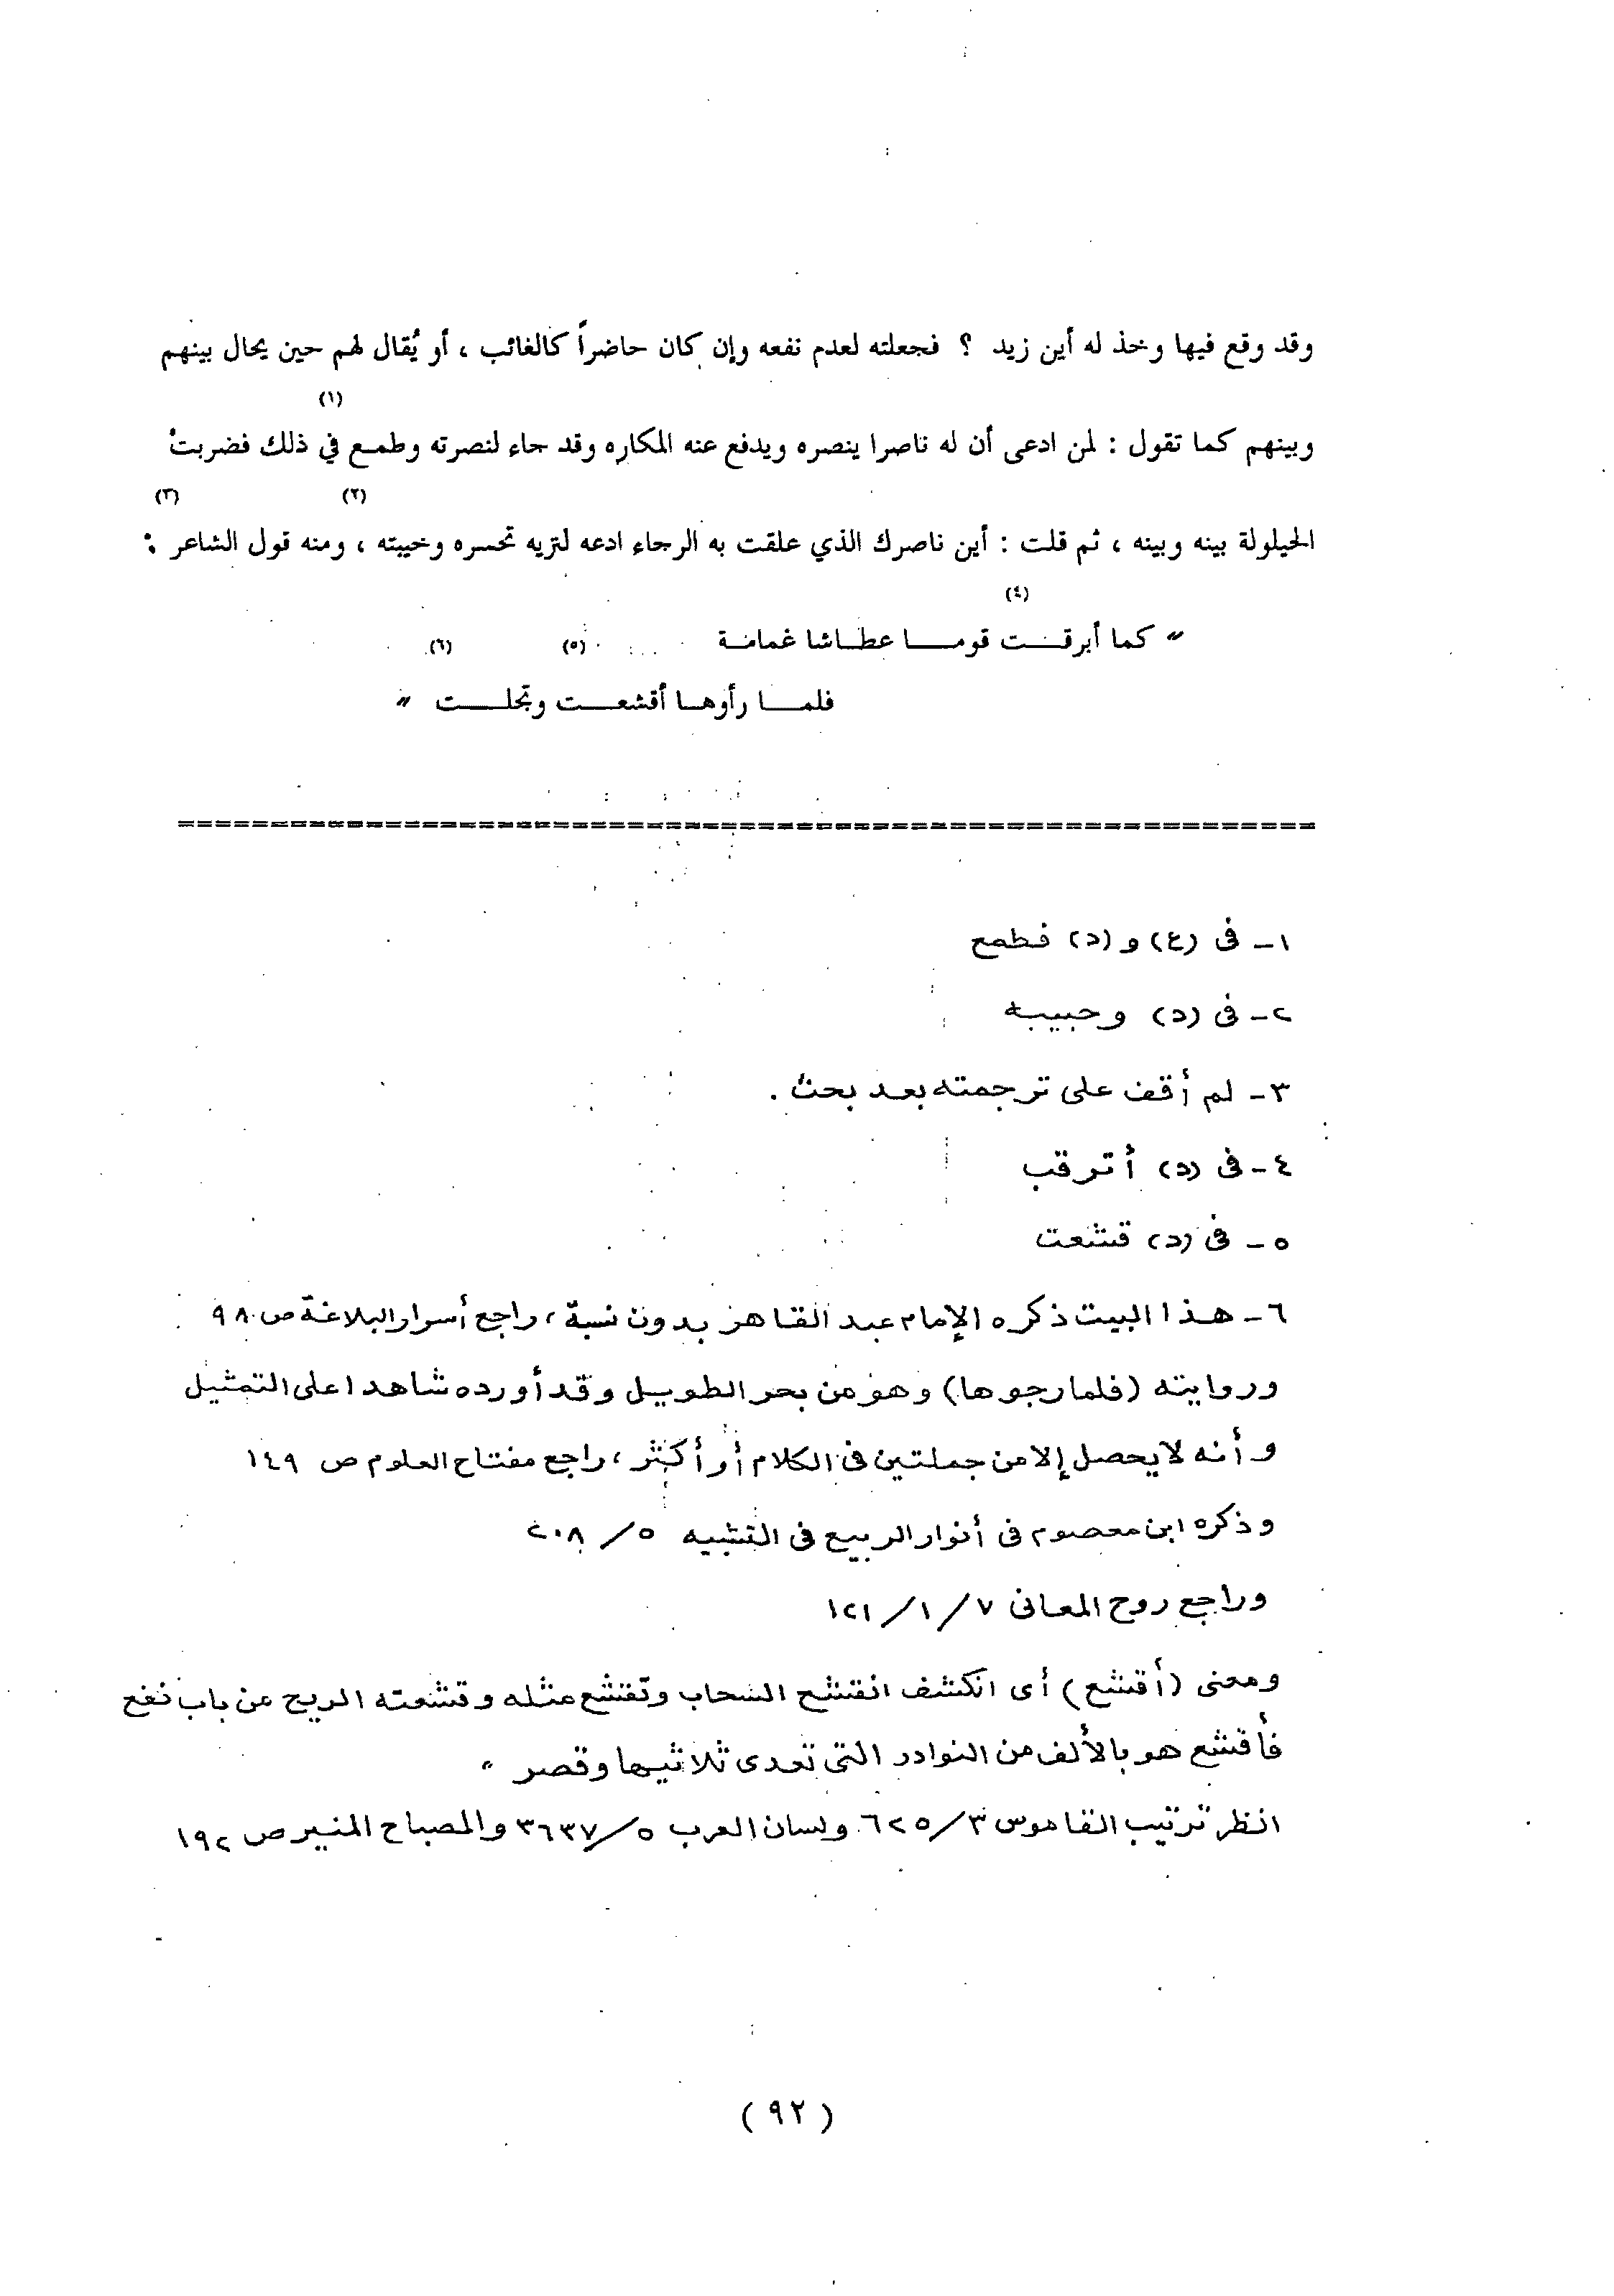 وقد وقع فيها وخذ له أين زيد ؟ فجعلته لعدم نفعه وإن كان حاضراً كالغائب ، أو يُقال لهم حين يحال بينهم
(١)
وبينهم كما تقول : لمن ادعى أن له ناصرا ينصره ويدفع عنه المكاره وقد جاء لنصرته وطمع في ذلك فضربتُ
(٢) (٣)
الحيلولة بينه وبينه ، ثم قلت : أين ناصرك الذي علقت به الرجاء ادعه لتريه تحسره وخيبته ، ومنه قول الشاعر :
(٤)
" كما أبرقت قوما عطاشا غمامة (٥) (٦)
فلما رأوها أقشعت وتجلت "
١- فى (ع) و (د) فطمع
٢- فى (د) وحبيبه
٣- لم أقف على ترجمته بعد بحث .
٤- فى (د) أترقب
٥- فى (د) قشعت
٦- هذا البيت ذكره الإمام عبد القاهر بدون نسبة ، راجع أسرار البلاغة ص ٩٨
وروايته (فلما رجوها) وهو من بحر الطويل وقد أورده شاهدا على التمثيل
وأنه لا يحصل إلا من جملتين فى الكلام أو أكثر ، راجع مفتاح العلوم ص ١٤٩
وذكره ابن معصوم فى أنوار الربيع فى التشبيه ٥/٢٠٨
وراجع روح المعانى ٧/١/١٢١
ومعنى (أقشع) أى انكشف انقشع السحاب وتقشع مثله وقشعته الريح من باب نفع
فأقشع هو بالألف من النوادر التى تعدى ثلاثيها وقصر "
انظر ترتيب القاموس ٣/٦٢٥ ولسان العرب ٥/٣٦٣٧ والمصباح المنير ص ١٩٢
( ٩٢ )